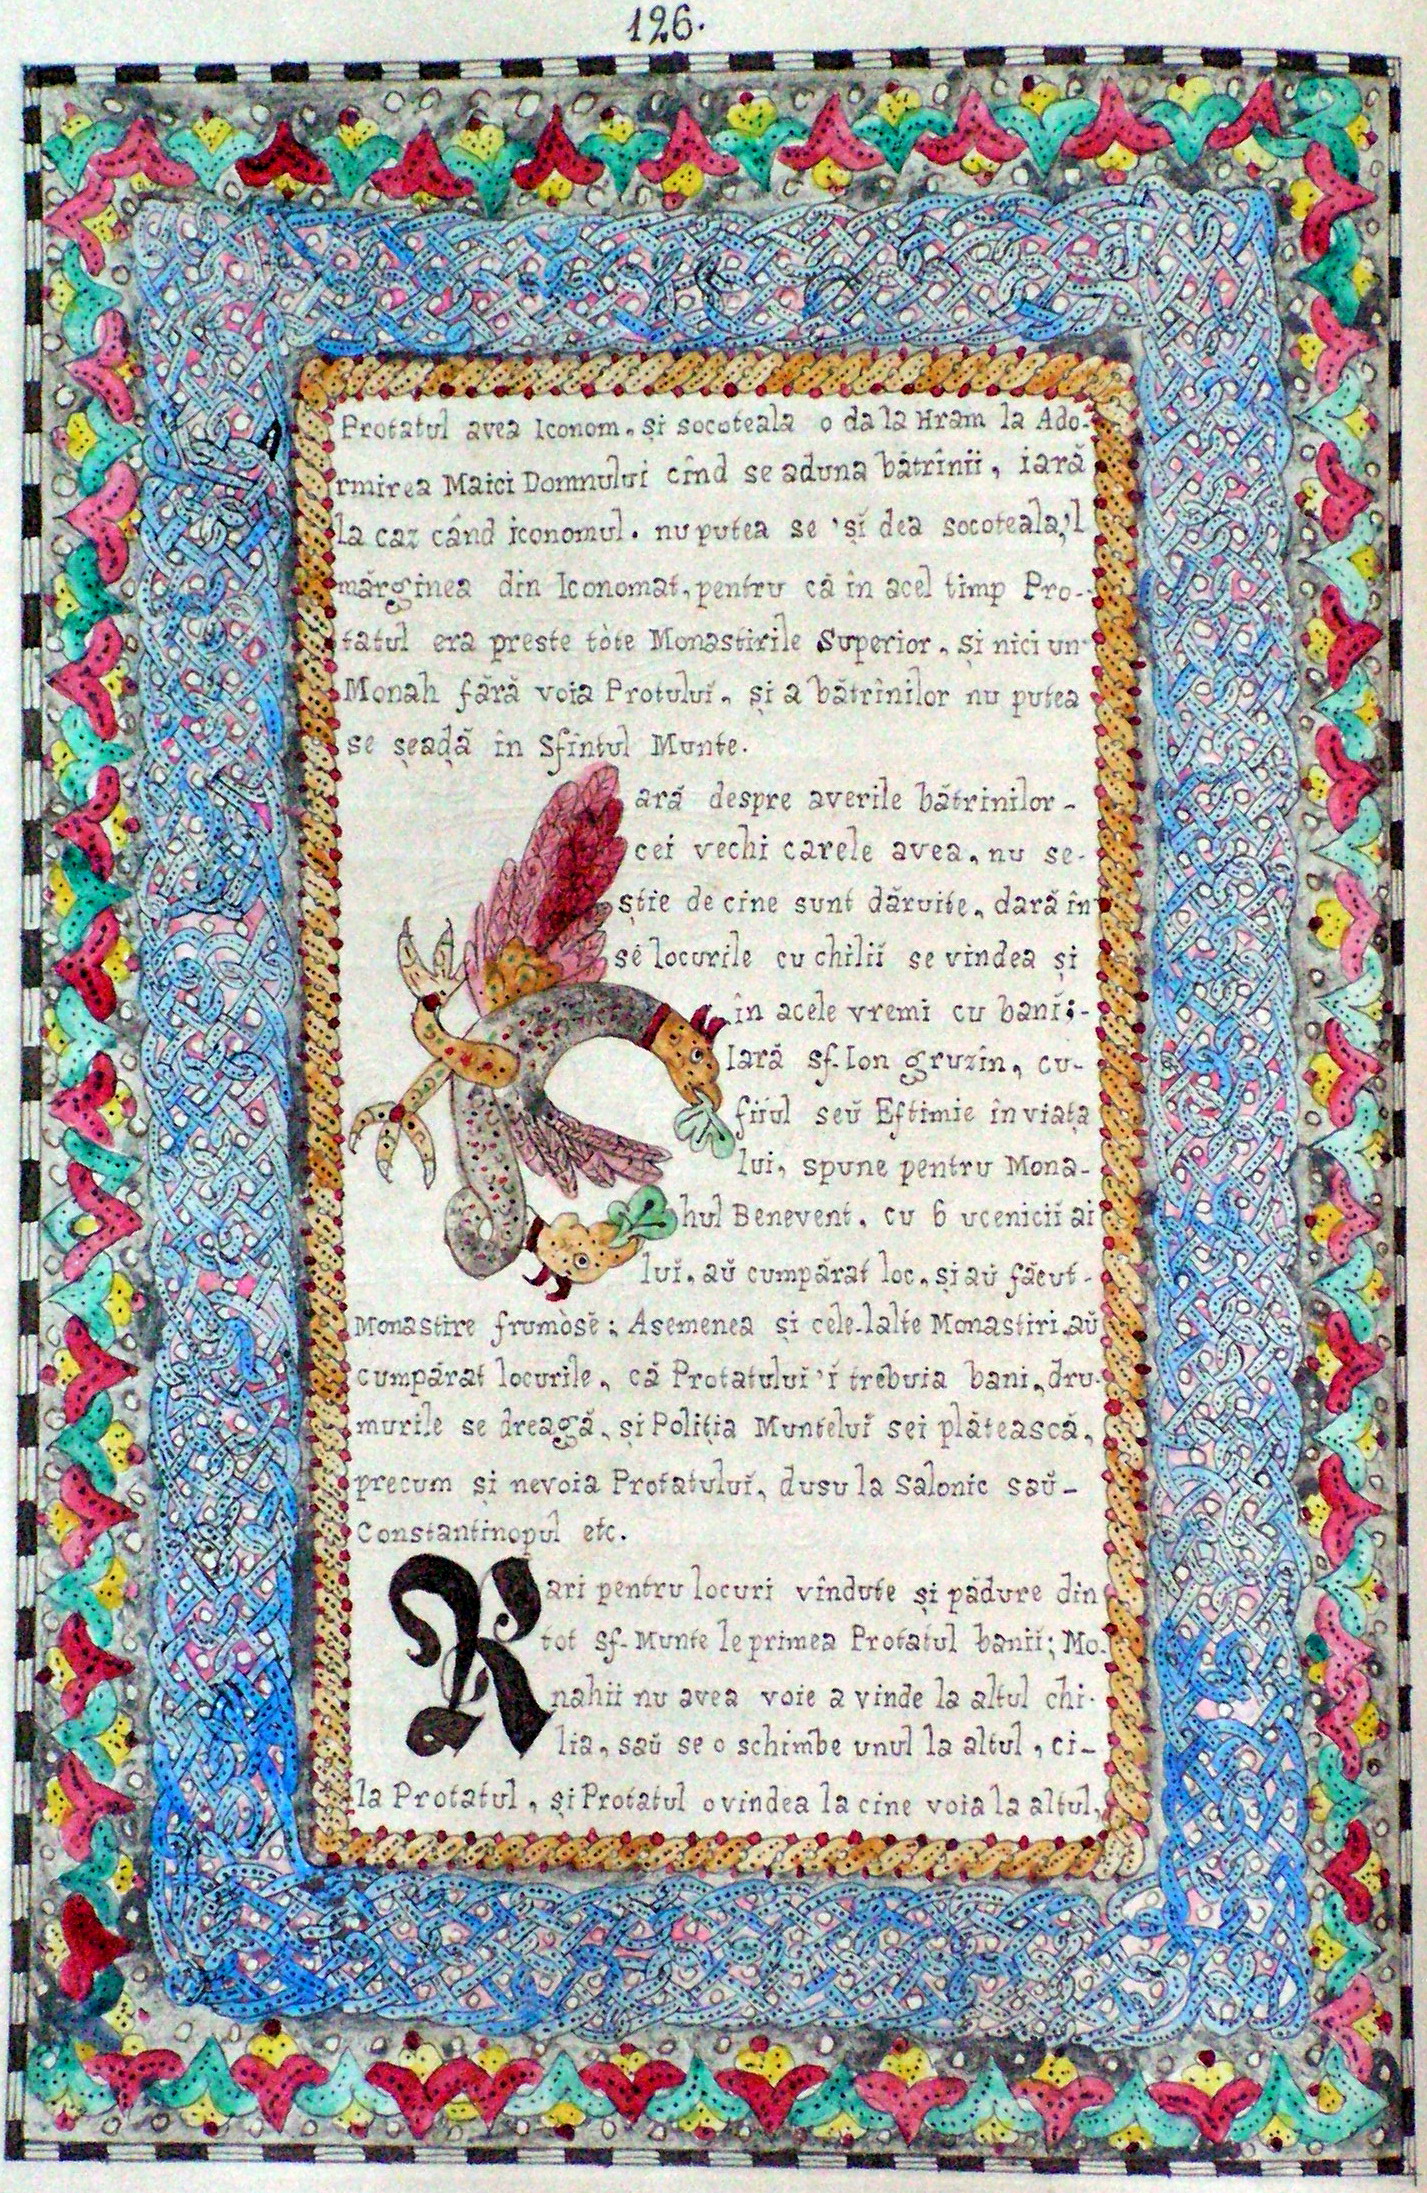 126.
Protatul avea Iconom, și socoteala o da la Hram la Ado-
rmirea Maici Domnului cînd se aduna bătrînii, iară
la caz când iconomul. nu putea se 'și dea socoteala,'l
mărginea din Iconomat, pentru că în acel timp Pro-
tatul era preste tòte Monastirile Superior, și nici un
Monah fără voia Protuluĭ, și a bătrînilor nu putea
se șeadă în Sfîntul Munte.
ară despre averile bătrinilor-
cei vechi carele avea, nu se-
știe de cine sunt dăruite, dară în
sĕ locurile cu chilií se vindea și
în acele vremi cu banĭ;-
Iară sf. Ion gruzîn, cu-
fiiul seŭ Eftimie în viața
lui, spune pentru Mona-
hul Benevent, cu 6 ucenicii ai
luĭ, aŭ cumpărat loc, și aŭ făcut-
Monastire frumòsĕ; Asemenea și cele-lalte Monastiri, aŭ
cumpărat locurile, că Protatului'ĭ trebuia bani, dru-
murile se dreagă, și Poliția Munteluĭ sei plătească,
precum și nevoia Protatuluĭ, dusu la Salonic saŭ-
Constantinopul etc.
Rari pentru locuri vîndute și pădure din
tot sf. Munte le primea Protatul banii; Mo-
nahii nu avea voie a vinde la altul chi-
lia, saŭ se o schimbe unul la altul, ci-
la Protatul, și Protatul o vindea la cine voia la altul,